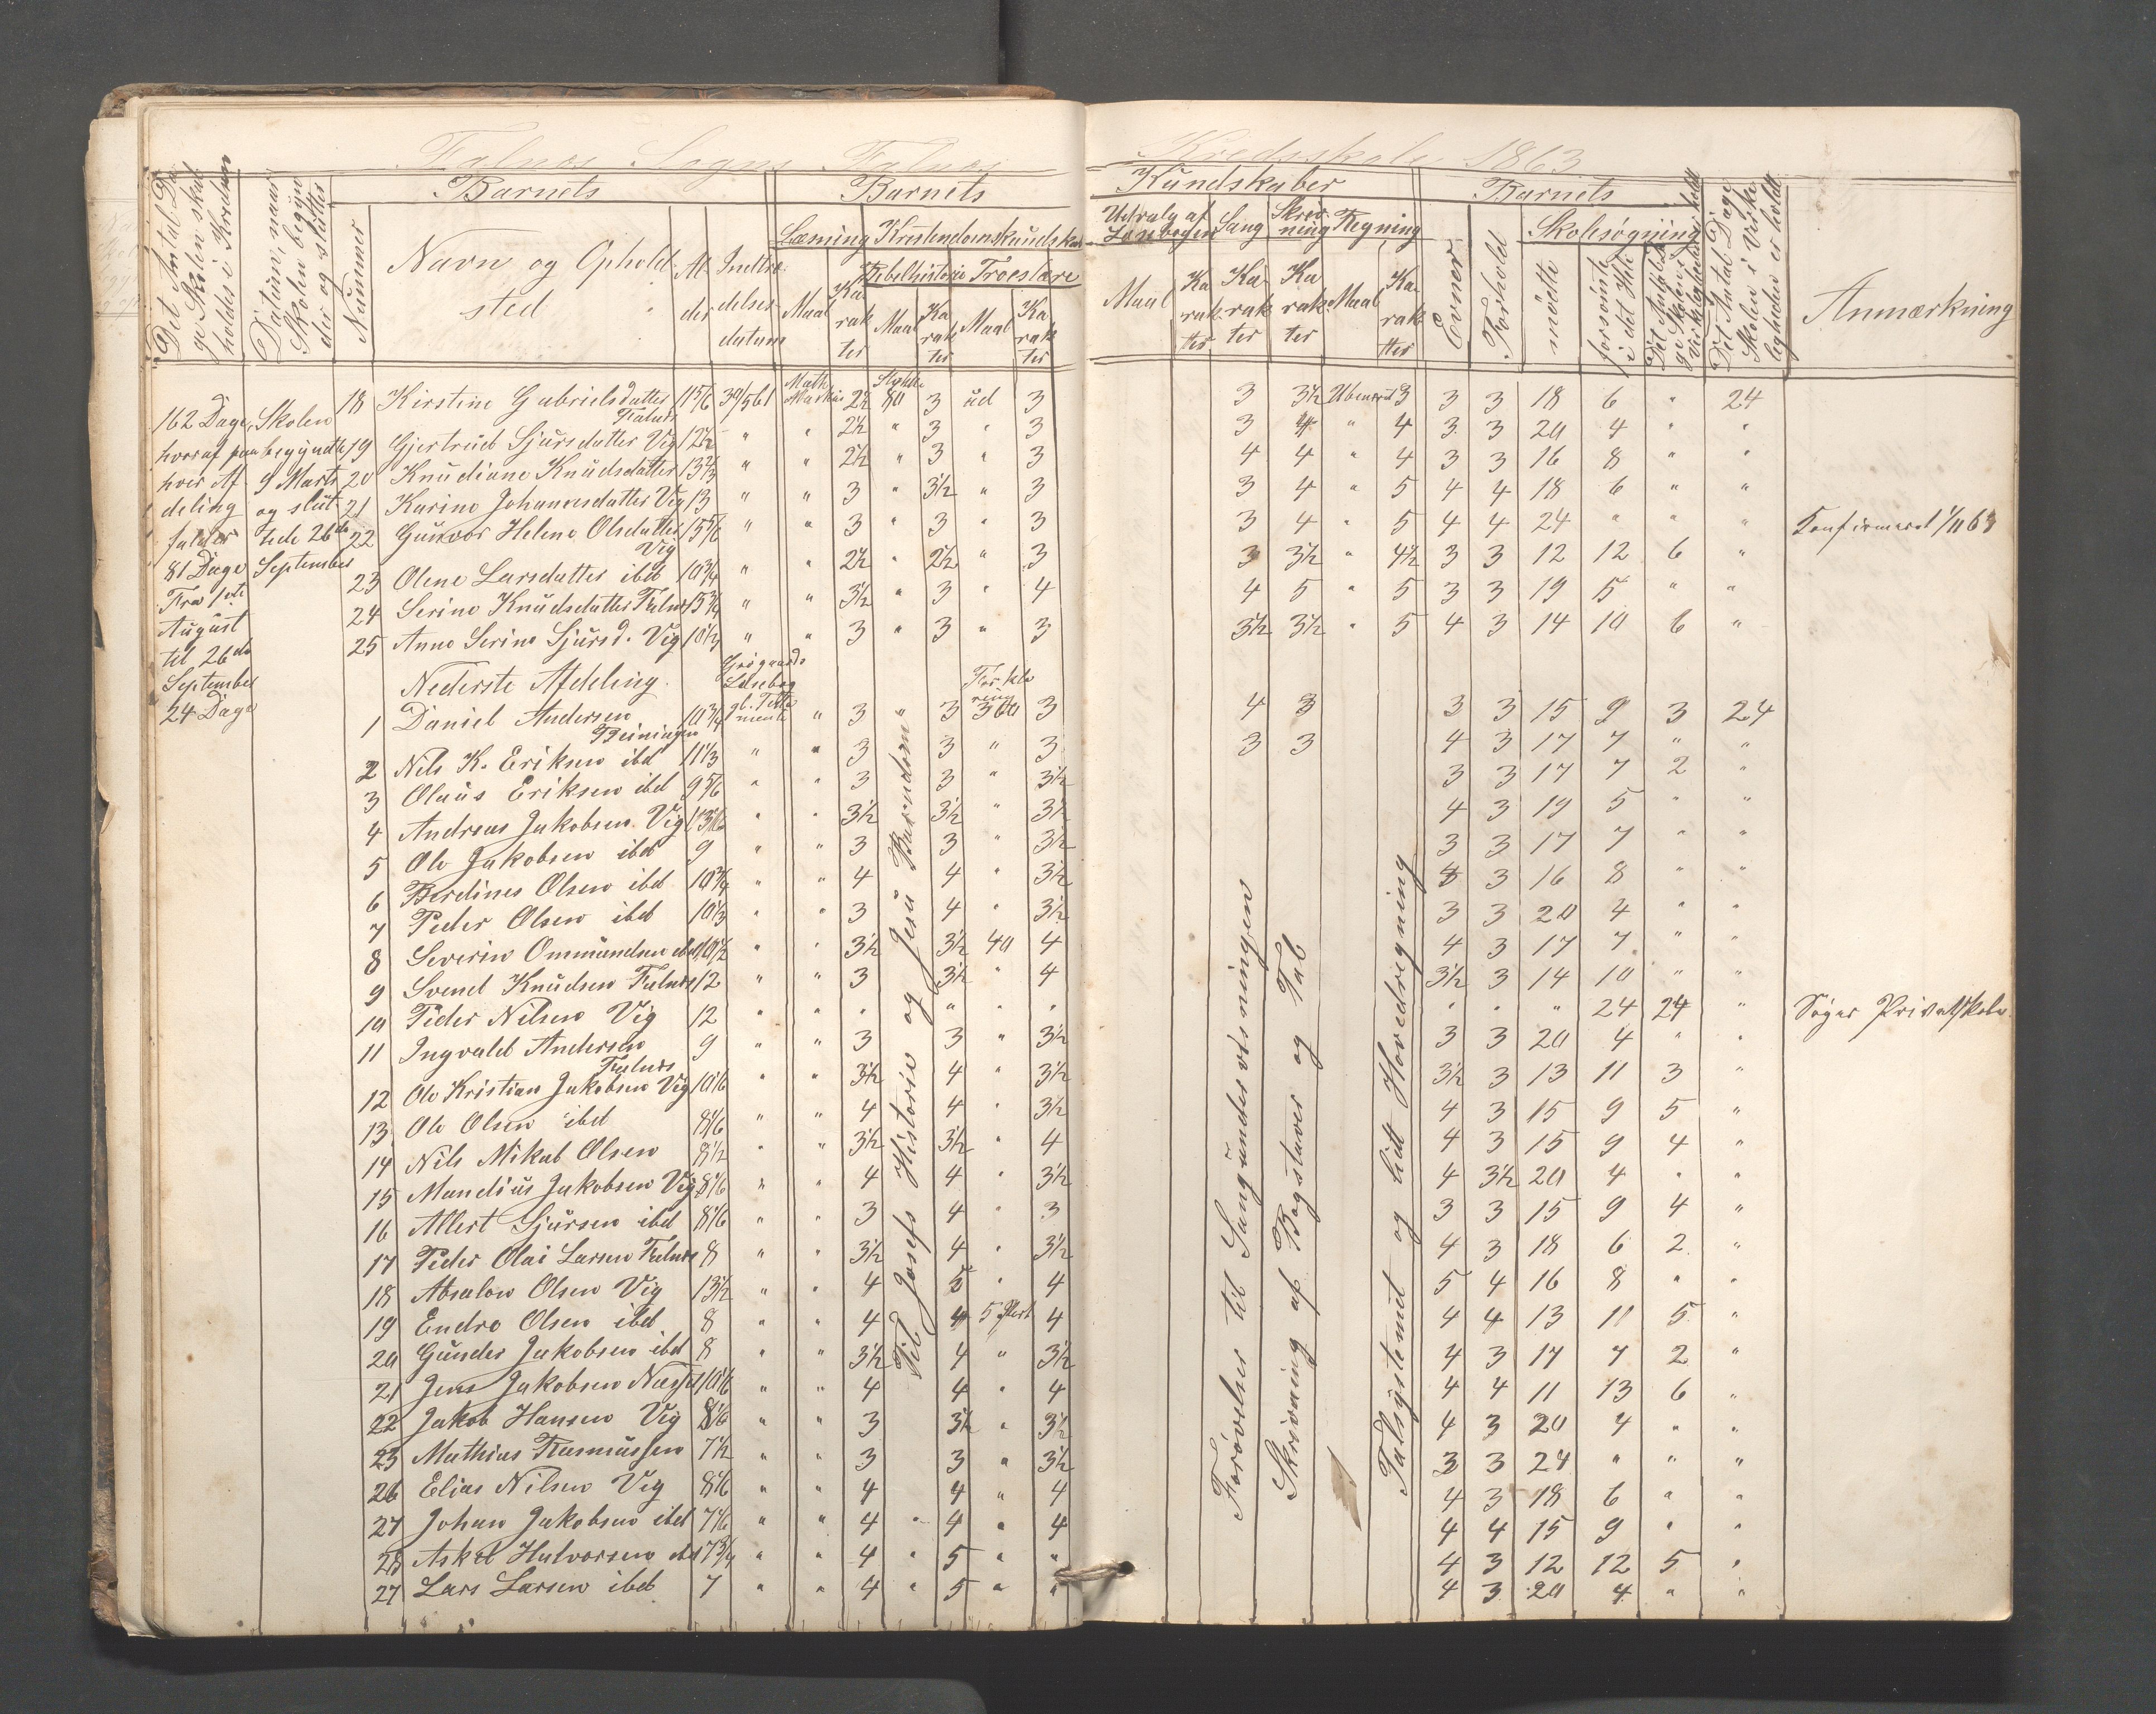 Falnæs Sogns Falnæs Kredsskole 1863
Det Antal Dage Skolen skal holdes i Kredsen
Datum, naar Skolen begynder og slutter
Nummer
Barnets
Navn og Opholdssted
Alder
Indtrædelsesdatum
Barnets Kundskaber
Læsning
Kristendomskundskab
Bibelhistorie
Troeslære
Maal Karakter Maal Karakter Maal Karakter
Udvalg af Læsebogen
Sang
Skrivning
Regning
Maal Karakter Karakter Karakter Maal Karakter
Barnets
Evner
Forhold
Skolesøgning
mødte
forsømte i det Hele
Det Antal Dage Skolen i Virkeligheden er holdt
Anmærkning
162 Dage,
hvoraf paa
hver Af-
deling
falder
81 Dage
Fra 1ste
August
til 26de
September
24 Dage
Skolen
begyndte
9 Marts
og slut-
tede 26de
September
18 Kirstine Gabrielsdatter Falnæs 11 5/6 30/5 61 2½ 80 3 ud 3 3 3½ Ubenævnt 3 3 3 18 6 " 24
19 Gjertrud Sjursdatter Vig 12½ " " 2½ " 3 " 3 3 4 " 4 3 3 20 4 " "
20 Knudiane Knudsdatter 13⅔ " " 2½ " 3 " 3 4 4 " 4 3 3 16 8 " "
21 Karine Johannesdatter Vig 13 " " 3 " 3½ " 3 3 4 " 5 4 4 18 6 " "
22 Gunvor Helene Olsdatter Vig 15 5/6 " " 3 " 3 " 3 3 4 " 5 4 4 24 " " " Konfirmeret 1/11 63
23 Olene Larsdatter ibd 10¾ " " 2½ " 2½ " 3 3 3½ " 4½ 3 3 12 12 6 "
24 Serine Knudsdatter Falnæs 13¾ " " 3½ " 3 " 4 4 5 " 5 3 3 19 5 " "
25 Anne Serine Sjursd. Vig 10⅓ " " 3 " 3 " 3 3½ 3½ " 5 4 3 14 10 6 "
Nederste Afdeling.
Læsebog
Forklaring
1 Daniel Andersen 10¾ " 3 " 3 300 3 4 3 3 3 15 9 3 24
2 Nils K. Eriksen ibd 11⅓ " " 3 3 " 3 3 3 4 3 17 7 " "
3 Olaus Eriksen ibd 9 5/6 " " 3 3 " 3½ 3 3 17 7 2 "
4 Andreas Jakobsen Vig " " 3½ 3½ " 3½ 4 3 19 5 " "
5 Ole Jakobsen ibd 9 " " 3 3 " 3½ 3 3 17 7 " "
6 Berdines Olsen ibd 10¾ " " 4 4 " 3½ 3 3 16 8 " "
7 Peder Olsen ibd 10⅓ " " 3 4 " 3½ 3 3 20 4 " "
8 Severin Ommundsen ibd 10½ " " 3½ 3½ 40 4 4 3 17 7 " "
9 Svend Knudsen Falnæs 12 " " 3 3½ " 4 3½ 3 14 10 " "
10 Peder Nilsen Vig 12 " " " " " " " " " 24 24 " Søger Privatskole
11 Ingvald Andersen Falnæs 9 " " 3 3 " 3½ 3 3 20 4 " "
12 Ole Kristian Jakobsen Vig 10 1/6 " " 3½ 4 " 3½ 3½ 3 13 11 3 "
13 Ole Olsen ibd 8 1/6 " " 4 4 " 3½ 4 3 15 9 5 "
14 Nils Mikal Olsen 8½ " " 3½ 3½ " 4 4 3 15 9 4 "
15 Mandius Jakobsen Vig 8 1/6 " " 4 4 " 3½ 4 3½ 20 4 " "
16 Allert Sjursen ibd 8 1/6 " " 3 4 " 3 3 3 15 9 4 "
17 Peder Olai Larsen Falnæs 8 " " 3½ 4 " 3½ 4 3 18 6 2 "
18 Absalon Olsen Vig 13½ " " 4 5 " 4 5 4 16 8 " "
19 Endre Olsen ibd 8 " " 4 4 5 Part 4 4 4 13 11 5 "
20 Gunder Jakobsen ibd 8 " " 3½ 4 " 3½ 4 3 17 7 2 "
21 Jens Jakobsen 10 1/6 " " 4 4 " 4 4 4 11 13 6 "
22 Jakob Hansen Vig 8 1/6 " " 3 3½ " 3½ 4 3 20 4 " "
23 Mathias Rasmussen 7½ " " 3 3 " 3½ 3 3 24 " " "
26 Elias Nilsen Vig 8 1/6 " " 4 4 " 4 4 3 18 6 " "
27 Johan Jakobsen ibd 7 1/6 " " 4 " 4 " 4 4 4 15 9 " "
28 Askel Halvorsen ibd 7¾ " " 4 " 5 " " 4 3 12 12 5 "
27 Lars Larsen ibd 7 " " 4 " 5 " " 4 3 20 4 " "
Til Josefs Historie og Jesu Barndom
Forøvelser til Sangundervisningen
Skrivning af Bogstaver og Tal
Talsystemet og lidt Hovedregning